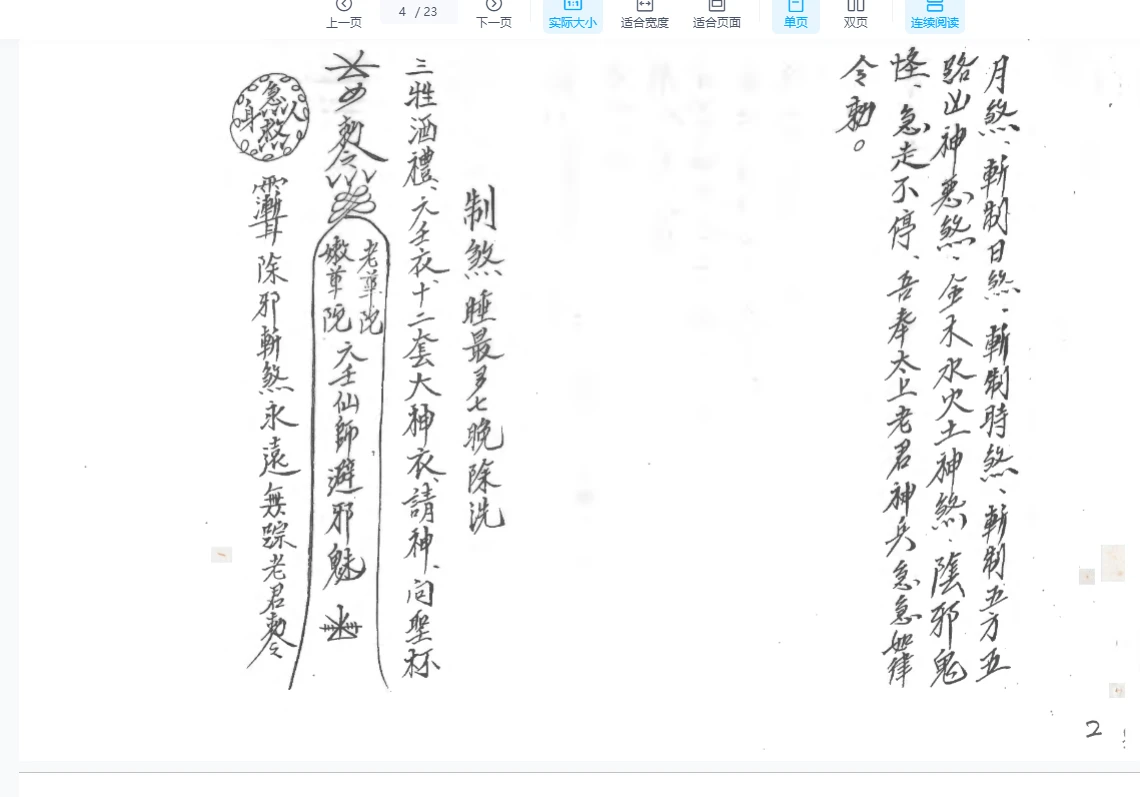 上一页
4 / 23
下一页
1:1
实际大小
适合宽度
适合页面
单页
双页
连续阅读
月煞、斬制日煞、斬制時煞、斬制五方五
路凶神惡煞、金木水火土神煞、陰邪鬼
怪、急走不停、吾奉太上老君神兵急急如律
令勅。
制煞睡最多七晚除洗
三牲酒禮、六壬衣、十二套大神衣、請神、问聖杯
勅令
老華陀
嫩華陀
六壬仙師避邪魅
急救人身
除邪斬煞永遠無踪老君勅令
2